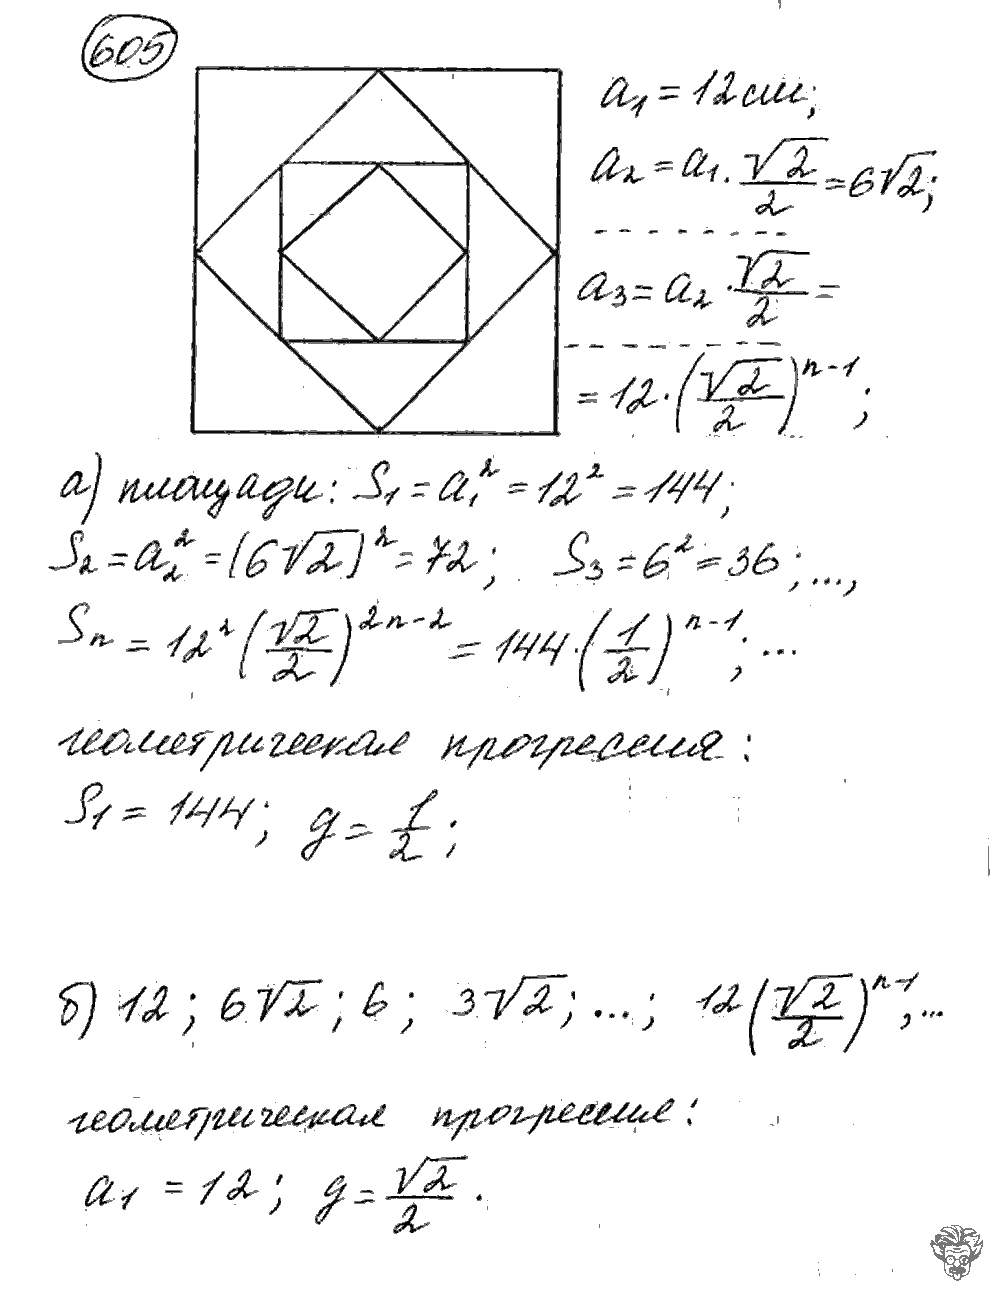 605
a₁ = 12см;
a₂ = a₁ · √2/2 = 6√2;
a₃ = a₂ · √2/2 =
= 12 · (√2/2)ⁿ⁻¹;
а) площади: S₁ = a₁² = 12² = 144;
S₂ = a₂² = [6√2]² = 72; S₃ = 6² = 36; ...,
Sₙ = 12² (√2/2)²ⁿ⁻² = 144 · (1/2)ⁿ⁻¹; ...
геометрическая прогрессия:
S₁ = 144; g = 1/2;
б) 12; 6√2; 6; 3√2; ...; 12 (√2/2)ⁿ⁻¹, ...
геометрическая прогрессия:
a₁ = 12; g = √2/2.